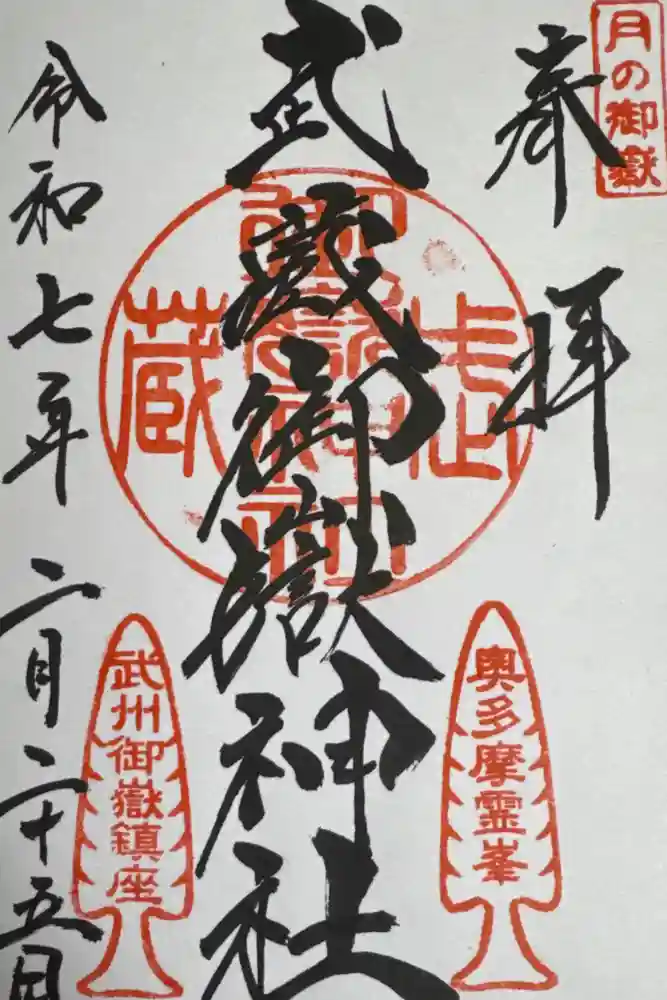 月の御嶽
奉拝
武蔵御嶽神社
武蔵
御嶽神社
奥多摩霊峯
武州御嶽鎮座
令和七年二月二十五日